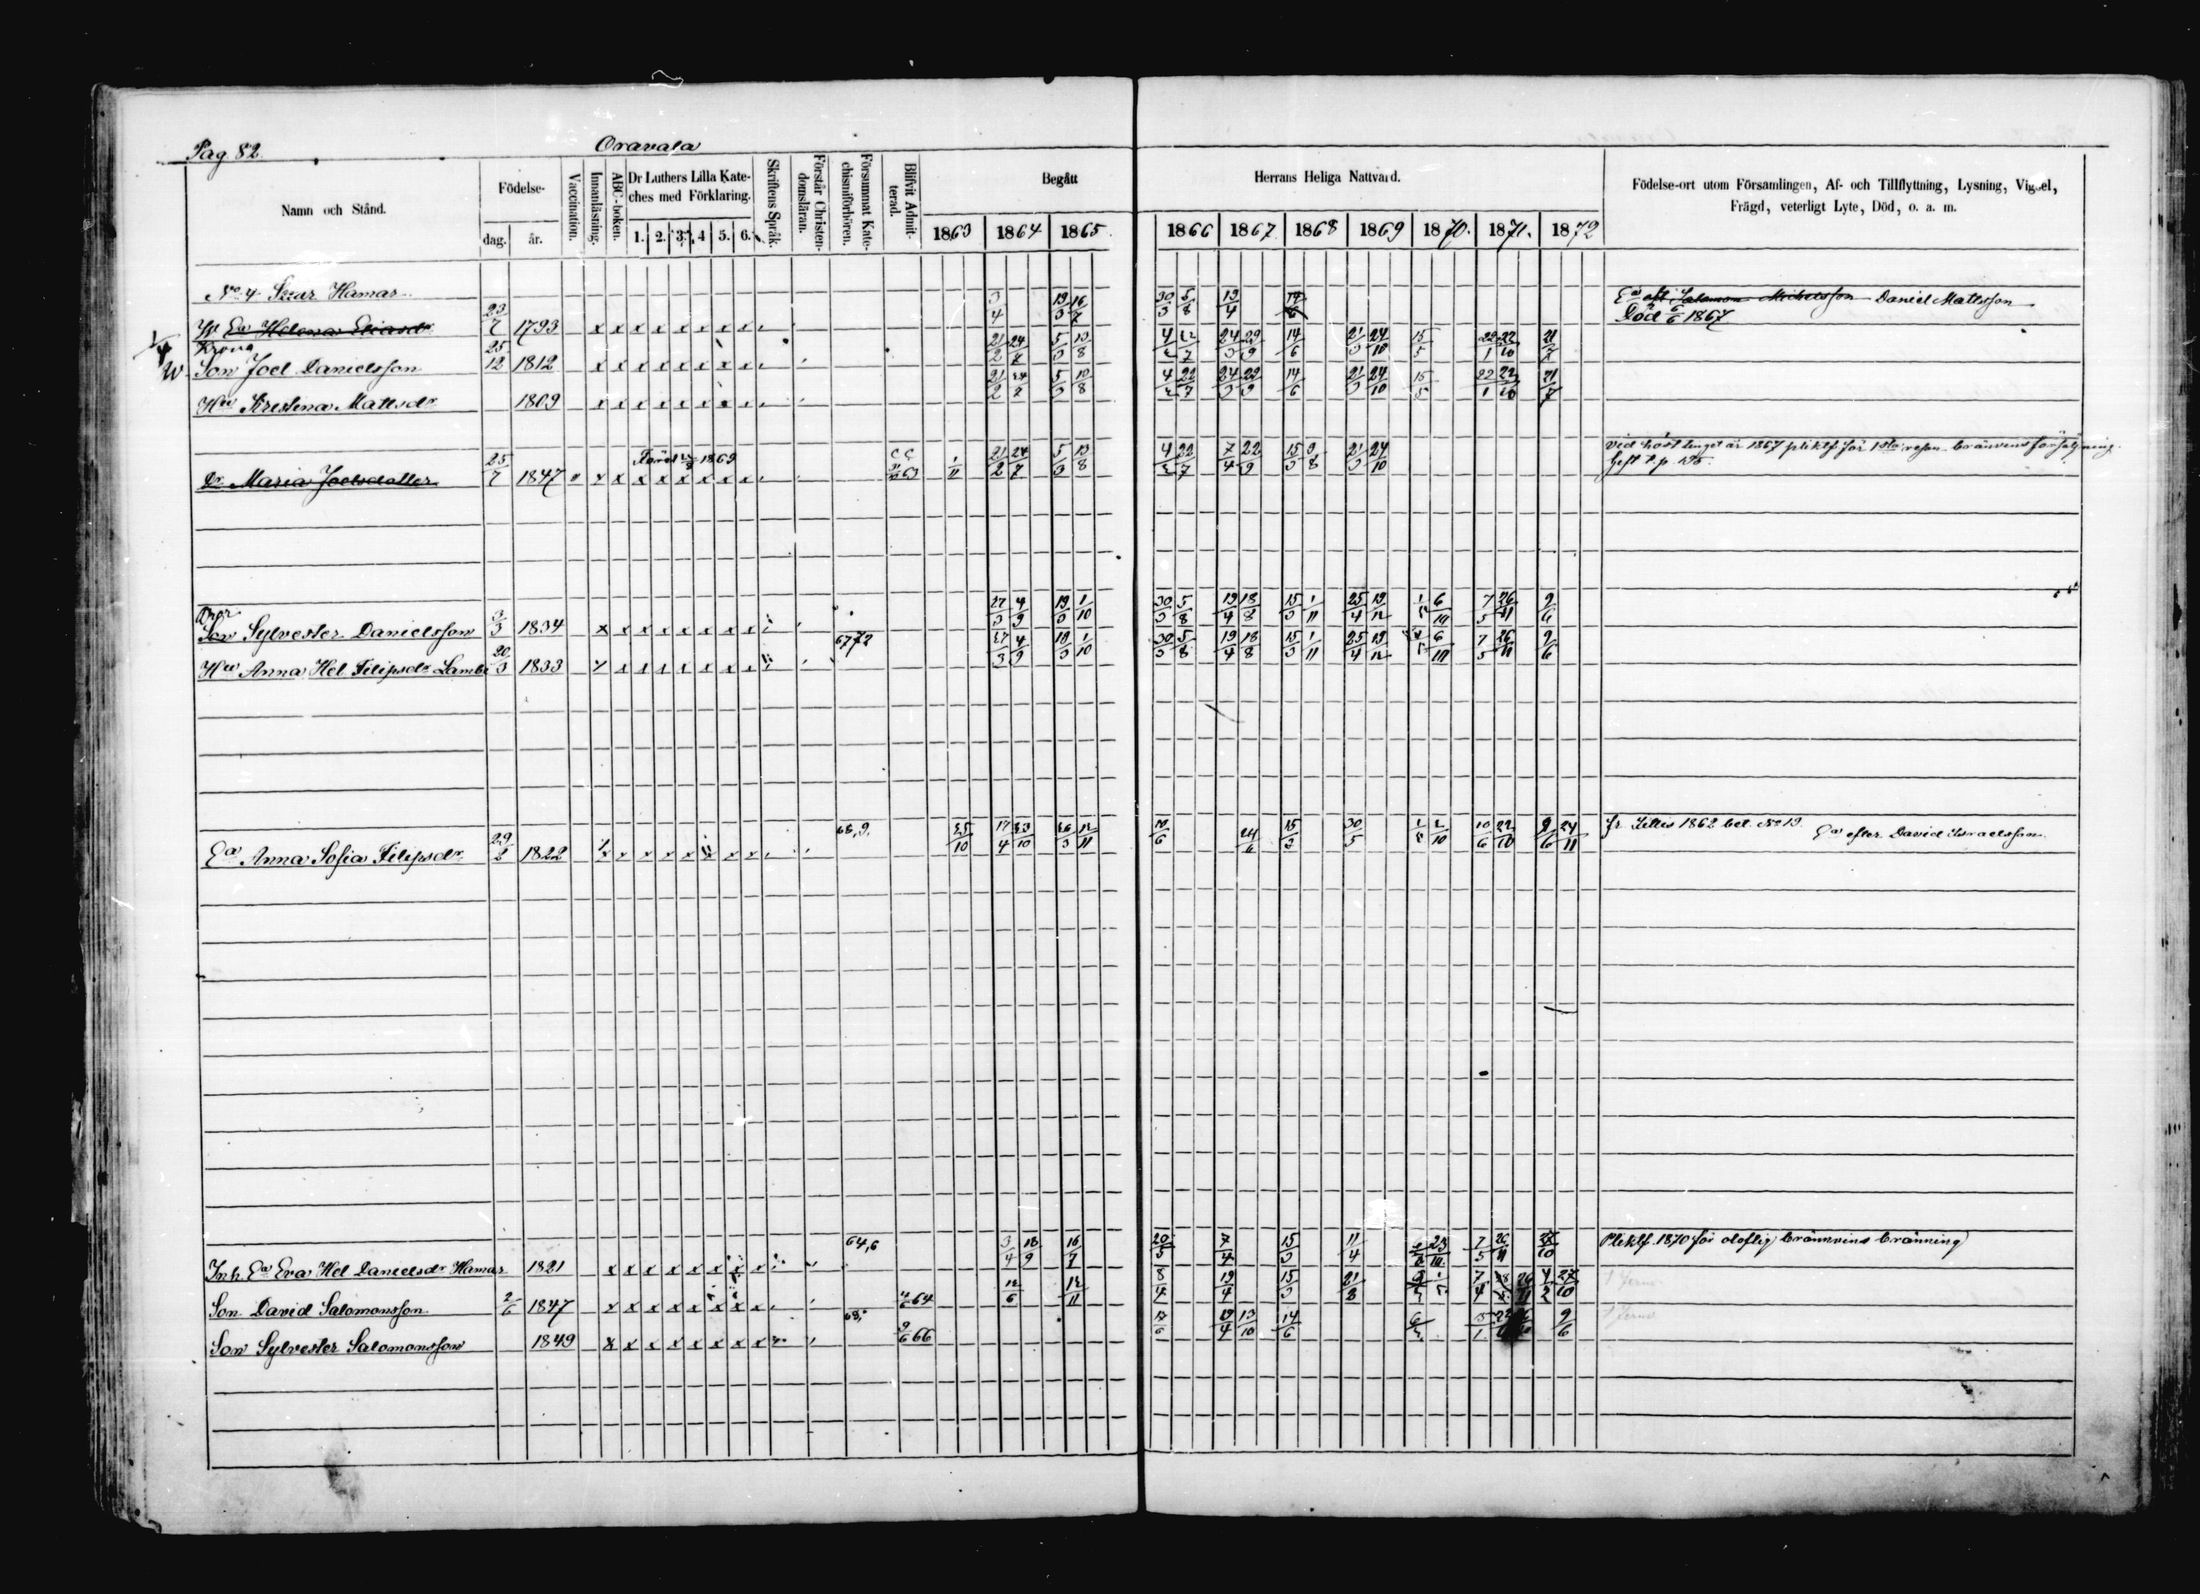 Pag 82. Oravala
Namn och Stånd. Födelse- dag. år. Vaccination. Innanläsning. ABC-boken. Dr Luthers Lilla Kateches med Förklaring. 1. 2. 3. 4 5. 6. Skriftens Språk. Förstår Christendomsläran. Försummat Katechismiförhören. Blifvit Admitterad. Begått Herrans Heliga Nattvard. Födelse-ort utom Församlingen, Af- och Tillflyttning, Lysning, Vigsel, Frägd, veterligt Lyte, Död, o. a. m.
1863 1864 1865 1866 1867 1868 1869 1870. 1871. 1872
No 4 Hamar
Ea Helena Eliasdr 23/7 1793 x x x x x x x x 3/4 19/3 16/7 30/3 5/8 19/4 Ea aft Salomon Michelsson Daniel Mattsson
Död 6/6 1867
1/4 Krono
Son Joel Danielsson 25/12 1812 x x x x x x x x 21/2 24/7 5/3 13/8 24/3 14/6 21/3 24/10 15/5 22/1 22/10 21/7
Hu Kristina Mattsdr 1809 x x x x x x x x 21/2 24/7 5/3 13/8 22/7 24/3 22/9 14/6 21/3 24/10 15/5 22/1 22/10 21/7
Dr Maria Joelsdotter 25/7 1847 x x x x x x x x 1869 63 1/11 21/2 24/7 5/3 13/8 22/7 7/4 22/9 15/3 9/8 21/3 24/10 Vid höst tinget år 1867 pliktf. för 1sta resan bränvins försäljning.
Son Sylvester Danielsson 3/3 1834 x x x x x x x x 27/3 4/9 19/3 1/10 30/3 5/8 19/4 18/8 15/3 1/11 25/4 19/12 6/10 7/5 26/11 9/6
Hu Anna Hel. Filipsdr Lambi 20/3 1833 x x x x x x x 67 72 27/3 4/9 19/3 1/10 30/3 5/8 19/4 18/8 15/3 1/11 25/4 19/12 6/10 7/5 26/11 9/6
Ea Anna Sofia Filipsdr 29/2 1822 x x x x x x x x 68, 9. 25/10 17/4 23/10 26/3 12/11 10/6 24/6 15/3 30/5 10/6 22/10 9/6 24/11 fr. 1862 bet. No 19. Ea efter David Israelsson
Inh. Ea Eva Hel Danielsdr Hamar 1821 x x x x x x x x 64, 6 3/4 18/9 16/7 20/5 7/4 15/3 11/4 23/10 7/5 26/11 Pliktf. 1870 för oloflig brännvins bränning
Son David Salomonsson 2/6 1847 x x x x x x x x 64 12/6 12/11 8/4 19/4 15/3 21/8 7/4 4/2 27/10
Son Sylvester Salomonsson 1849 x x x x x x x x 68, 9/6 66 19/4 13/10 14/6 9/6